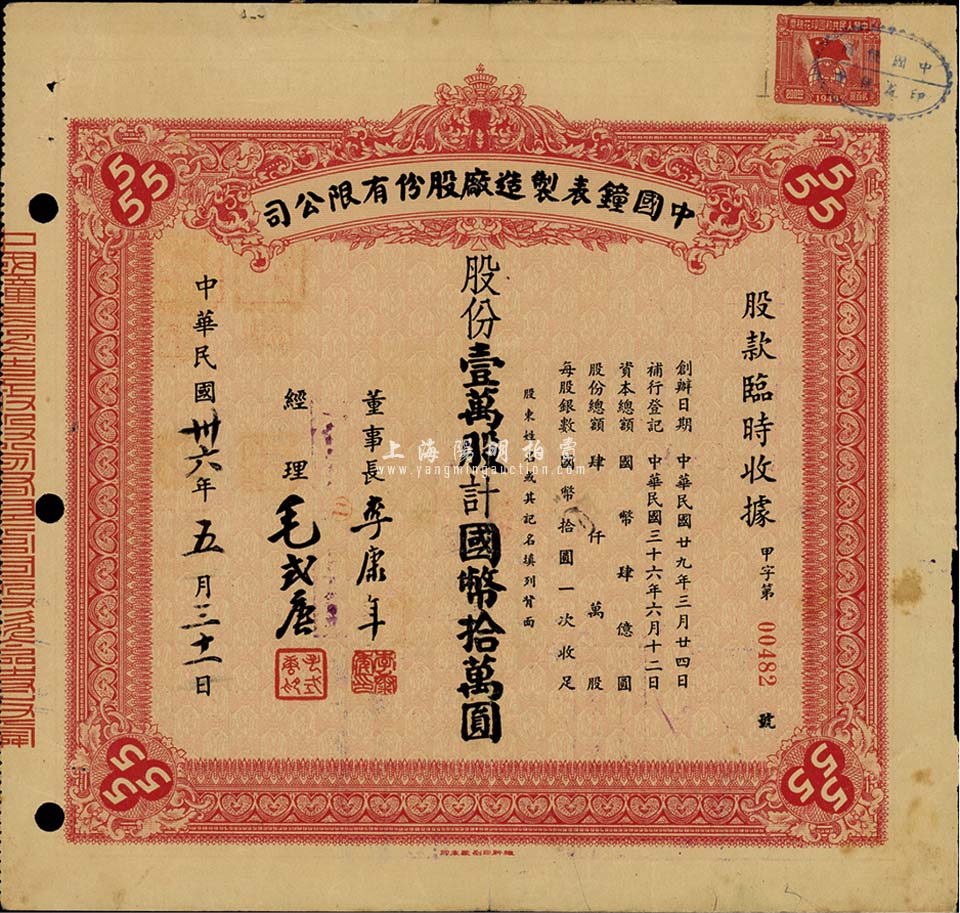 中華人民共和國印花稅票
200元
1949
中國鐘表製造廠股份有限公司
555
555
股款臨時收據
甲字第 00482 號
創辦日期 中華民國廿九年三月廿四日
補行登記 中華民國三十六年六月十二日
資本總額 國幣肆億圓
股份總額 肆仟萬股
每股銀數 國幣拾圓一次收足
股東姓名或其記名填列背面
股份壹萬股計國幣拾萬圓
董事長 李康年
經理 毛式唐
中華民國卅六年五月三十一日
555
555
上海陽明拍賣
www.yangmingauction.com